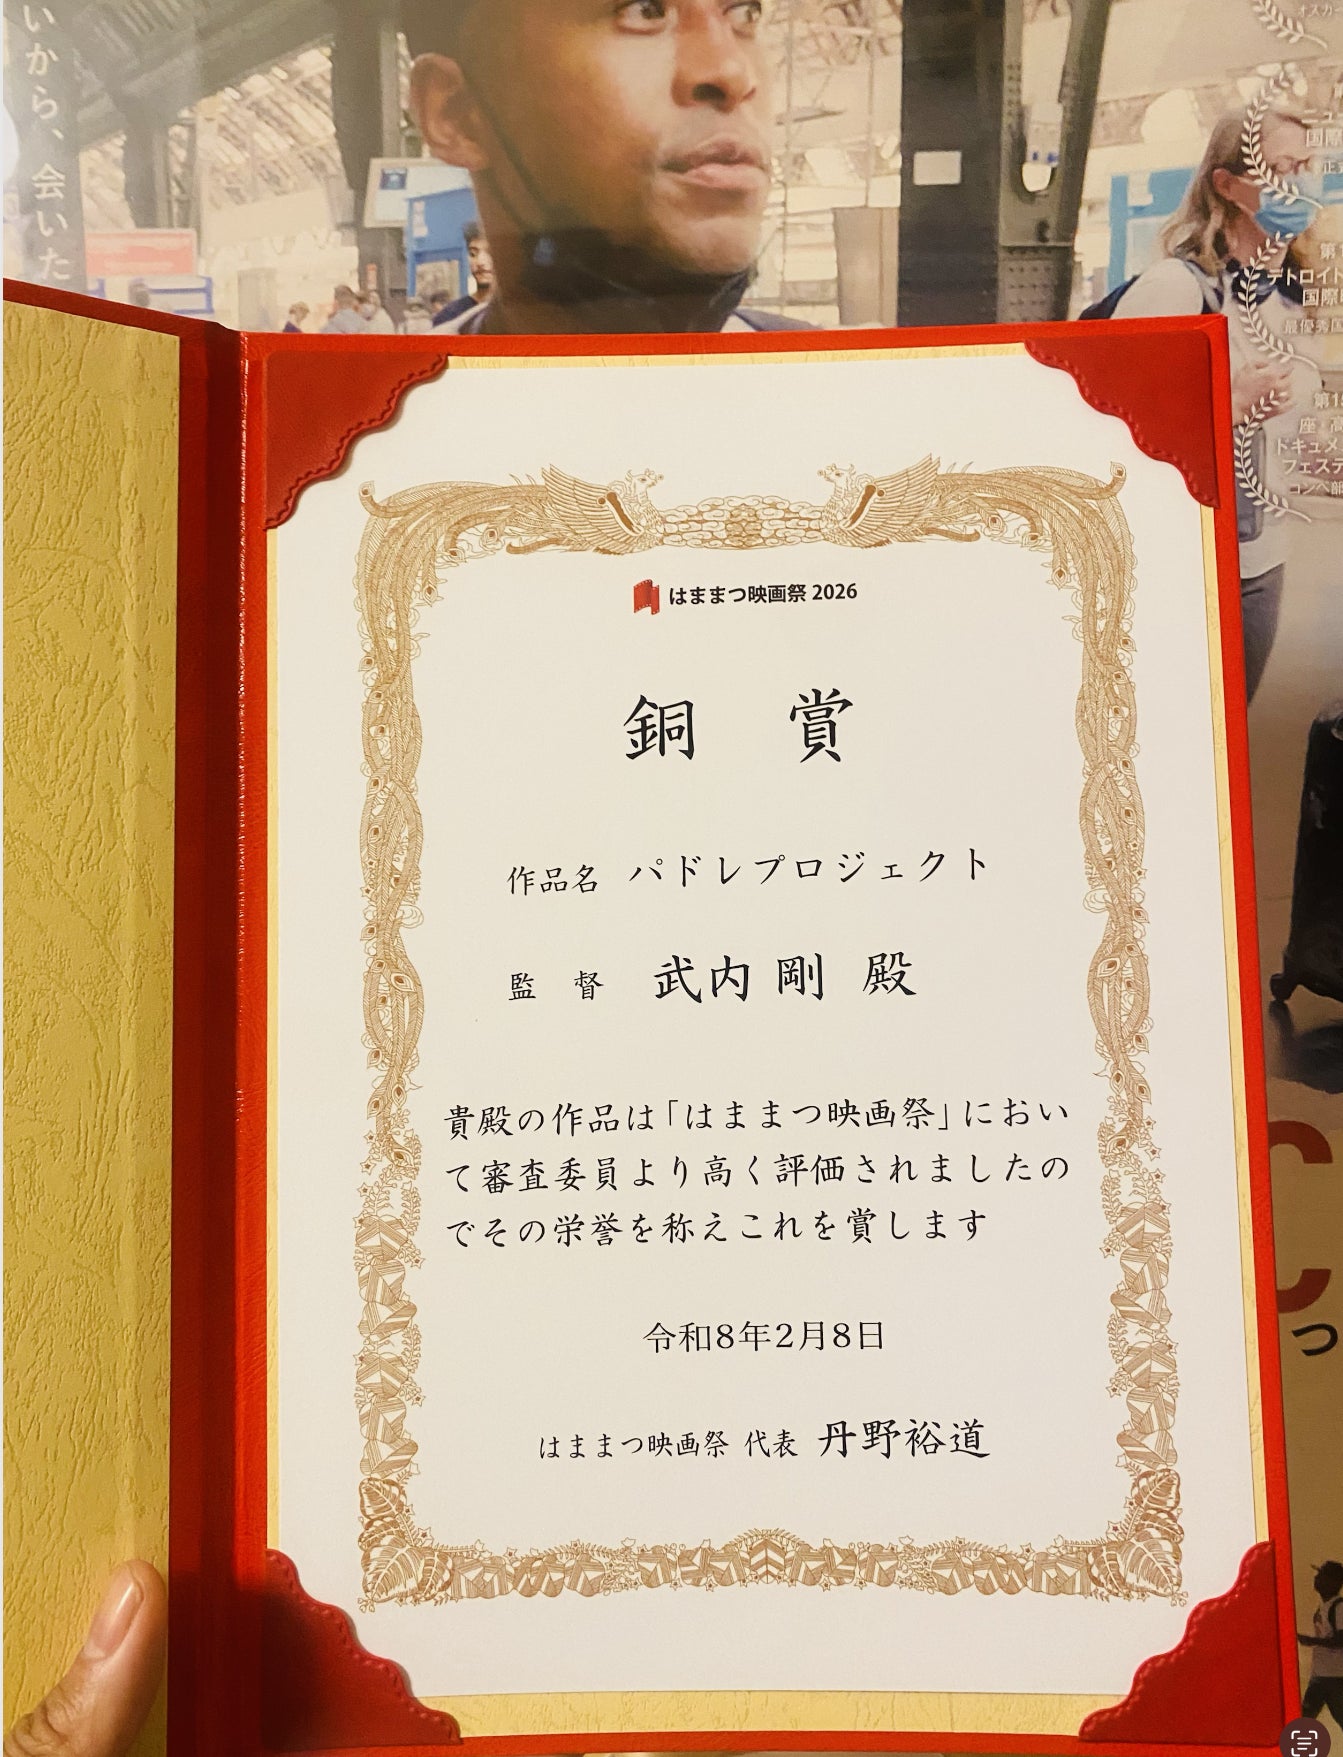 いから、会いた
ニュ
国際
デトロイト
国際
最優秀
ドキュメ
フェステ
コンペ部
はままつ映画祭 2026
銅 賞
作品名 パドレプロジェクト
監 督 武内 剛 殿
貴殿の作品は「はままつ映画祭」におい
て審査委員より高く評価されましたの
でその栄誉を称えこれを賞します
令和8年2月8日
はままつ映画祭 代表 丹野裕道
つ